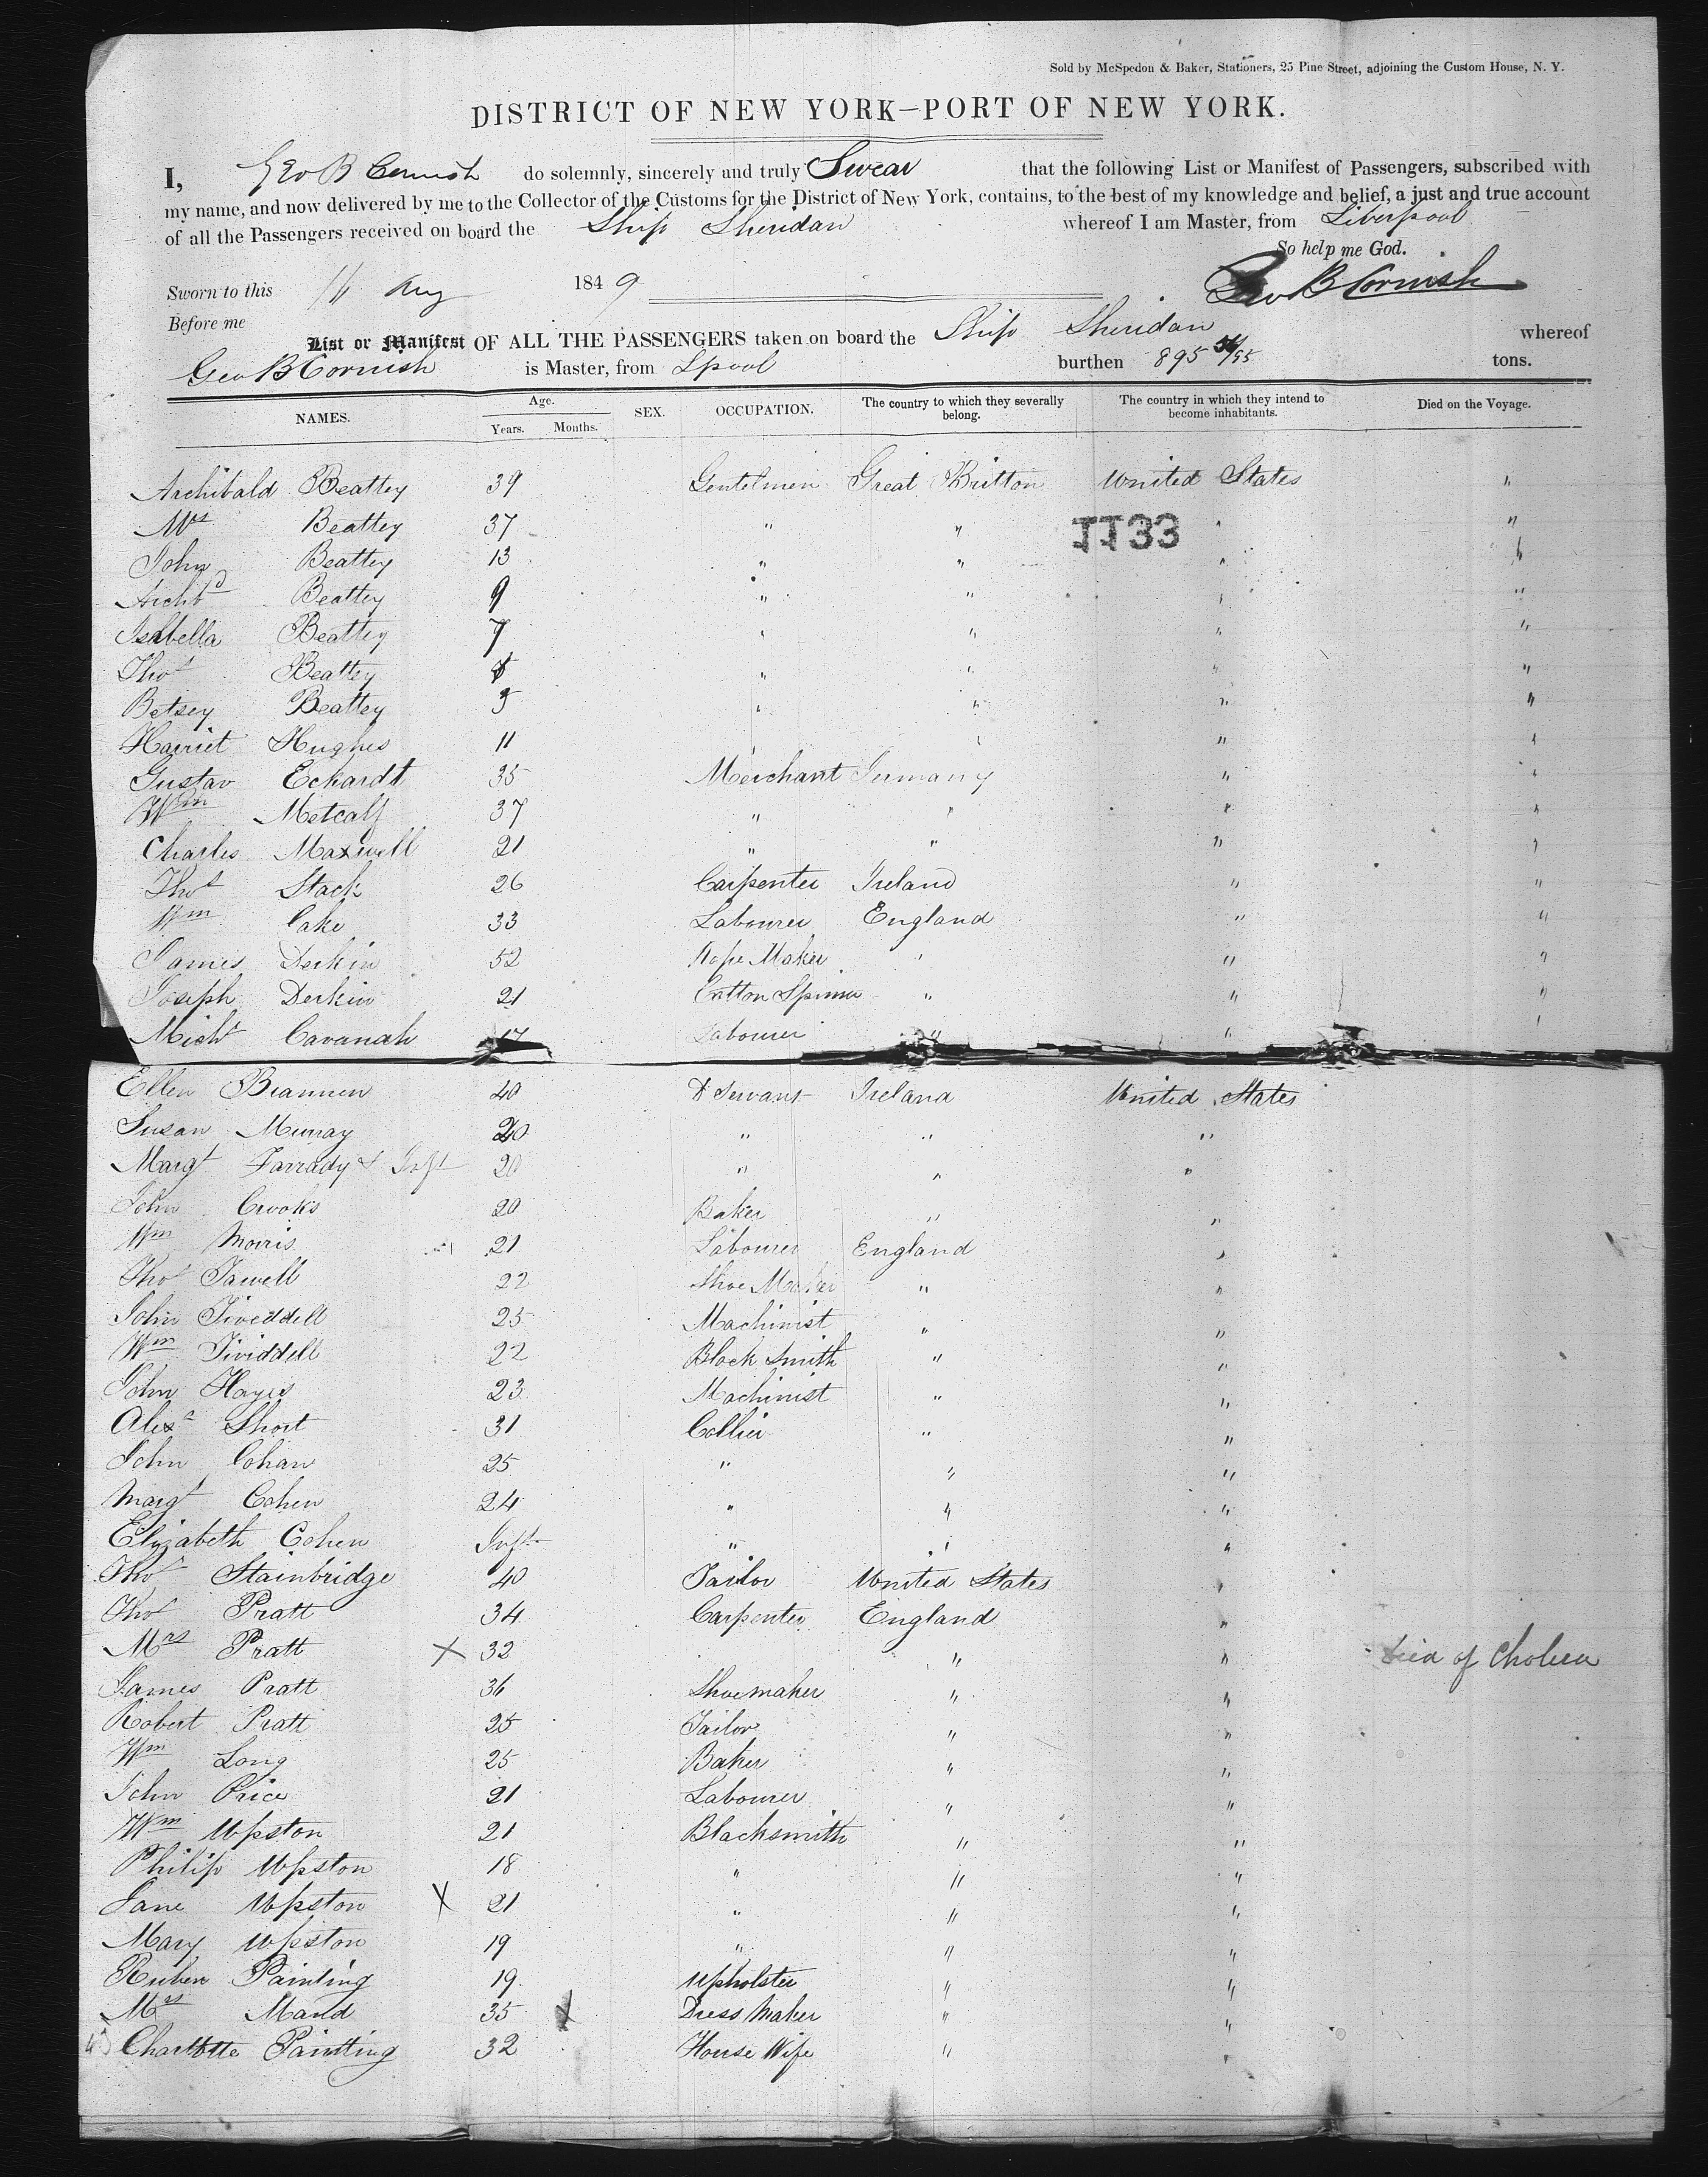 Sold by McSpedon & Baker, Stationers, 25 Pine Street, adjoining the Custom House, N. Y.
DISTRICT OF NEW YORK—PORT OF NEW YORK.
I, Geo B Cornish do solemnly, sincerely and truly Swear that the following List or Manifest of Passengers, subscribed with
my name, and now delivered by me to the Collector of the Customs for the District of New York, contains, to the best of my knowledge and belief, a just and true account
of all the Passengers received on board the Ship Sheridan whereof I am Master, from Liverpool
So help me God.
Sworn to this 11 Aug 1849 Geo B Cornish
Before me
List or Manifest OF ALL THE PASSENGERS taken on board the Ship Sheridan whereof
Geo B Cornish is Master, from Lpool burthen 895 /95 tons.
NAMES. Age. Years. Months. SEX. OCCUPATION. The country to which they severally belong. The country in which they intend to become inhabitants. Died on the Voyage.
Archibald Beattey 39 Gentelmen Great Britton United States "
Mrs Beattey 37 " " 1133 " "
John Beattey 13 " " " "
Archd Beattey 9 " " " "
Isabella Beattey 7 " " " "
Thos Beattey " " " "
Betsey Beattey 3 " " " "
Harriet Hughes 11 " " " "
Gustav Eckardt 35 Merchant Germany " "
Wm Metcalf 37 " " " "
Charles Maxwell 21 " " " "
Thos Stack 26 Carpenter Ireland " "
Wm Cake 33 Labourer England " "
James Derkin 52 Rope Maker " " "
Joseph Derkin 21 Cotton Spinner " " "
Michl Cavanah 17 Labourer " " "
Ellen Brannen 40 D Servant Ireland United States
Susan Murray 20 " " "
Margt Farrady & Inft 20 " " "
John Crooks 20 Baker " "
Wm Morris 21 Labourer England "
Thos Jawell 22 Shoe Maker " "
John Tiveddell 25 Machinist " "
Wm Tividdell 22 Black Smith " "
John Hayes 23 Machinist " "
Alexr Short 31 Collier " "
John Cohan 25 " " "
Margt Cohen 24 " " "
Elizabeth Cohen Inft " " "
Thos Stainbridge 40 Tailor United States "
Thos Pratt 34 Carpenter England "
Mrs Pratt X 32 " " died of Cholera
James Pratt 36 Shoemaker " "
Robert Pratt 25 Tailor " "
Wm Long 25 Baker " "
John Price 21 Labourer " "
Wm Upston 21 Blacksmith " "
Philip Upston 18 " " "
Jane Upston X 21 " " "
Mary Upston 19 " " "
Ruben Painting 19 Upholster " "
Mrs Mand 35 X Dress Maker " "
Charlotte Painting 32 House Wife " "